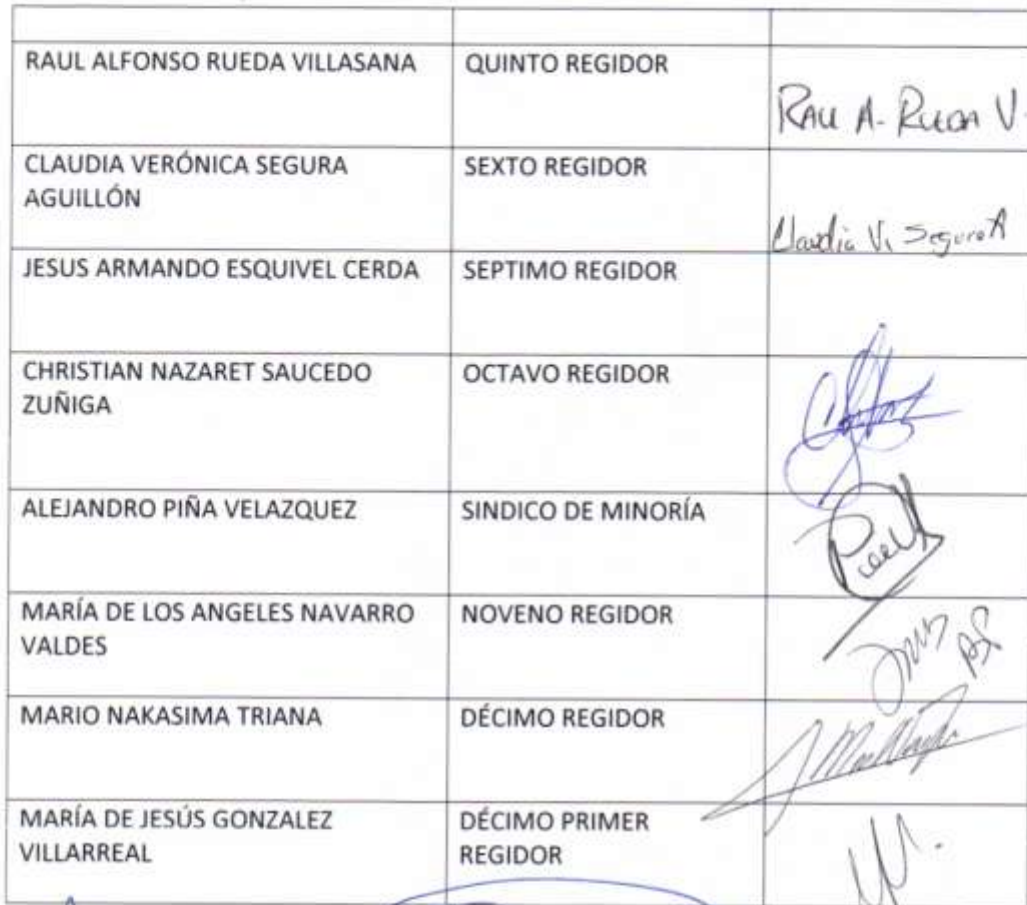 RAUL ALFONSO RUEDA VILLASANA QUINTO REGIDOR
RAU A- RUEDA V.
CLAUDIA VERÓNICA SEGURA SEXTO REGIDOR
AGUILLÓN
Claudia V. Segura A
JESUS ARMANDO ESQUIVEL CERDA SEPTIMO REGIDOR
CHRISTIAN NAZARET SAUCEDO OCTAVO REGIDOR
ZUÑIGA
ALEJANDRO PIÑA VELAZQUEZ SINDICO DE MINORÍA
MARÍA DE LOS ANGELES NAVARRO NOVENO REGIDOR
VALDES
MARIO NAKASIMA TRIANA DÉCIMO REGIDOR
MARÍA DE JESÚS GONZALEZ DÉCIMO PRIMER
VILLARREAL REGIDOR